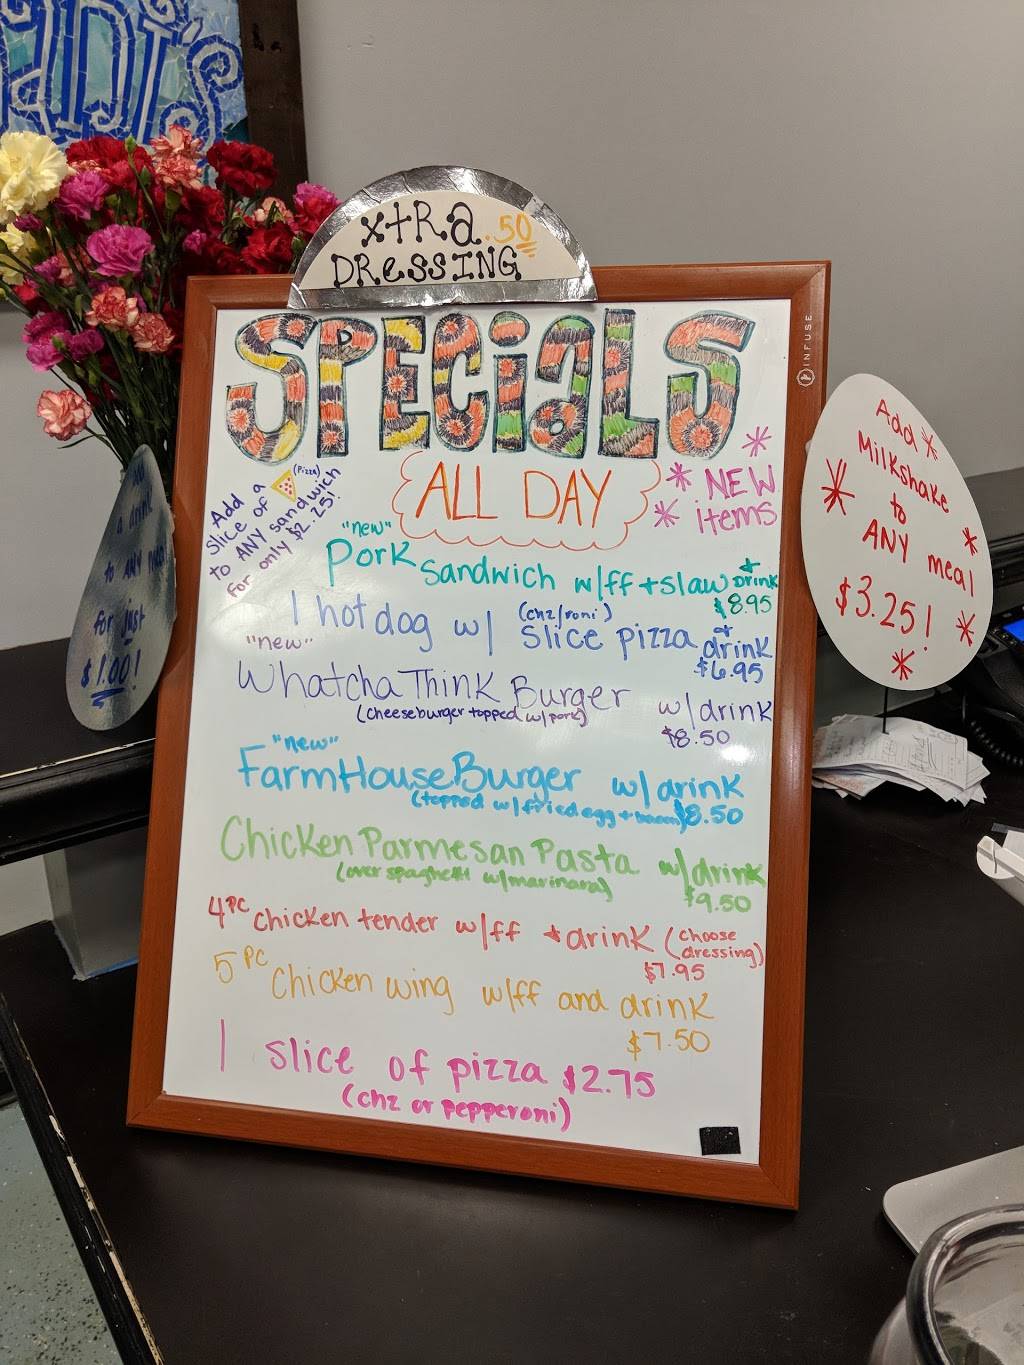 ADI'S
XtRa .50
DRessING
SPECiaLS
ALL DAY
* NEW
* items
Add
Slice of a (Pizza)
to ANY sandwich
for only $2.25!
"new"
Pork Sandwich w/ff + slaw + Drink
$8.95
1 hot dog w/ (chz/roni) slice pizza + drink
$6.95
"new"
WhatchaThink Burger w/drink
(cheeseburger topped w/pork) $8.50
"new"
FarmHouse Burger w/drink
(topped w/fried egg + bacon) $8.50
Chicken Parmesan Pasta w/drink
(over spaghetti w/marinara) $9.50
4 PC chicken tender w/ff + drink (choose
dressing)
$7.95
5 PC Chicken wing w/ff and drink
$7.50
1 slice of pizza $2.75
(chz or pepperoni)
INFUSE
Add
a drink
to ANY meal
for just
$1.00!
Add
Milkshake
to
ANY meal
$3.25!